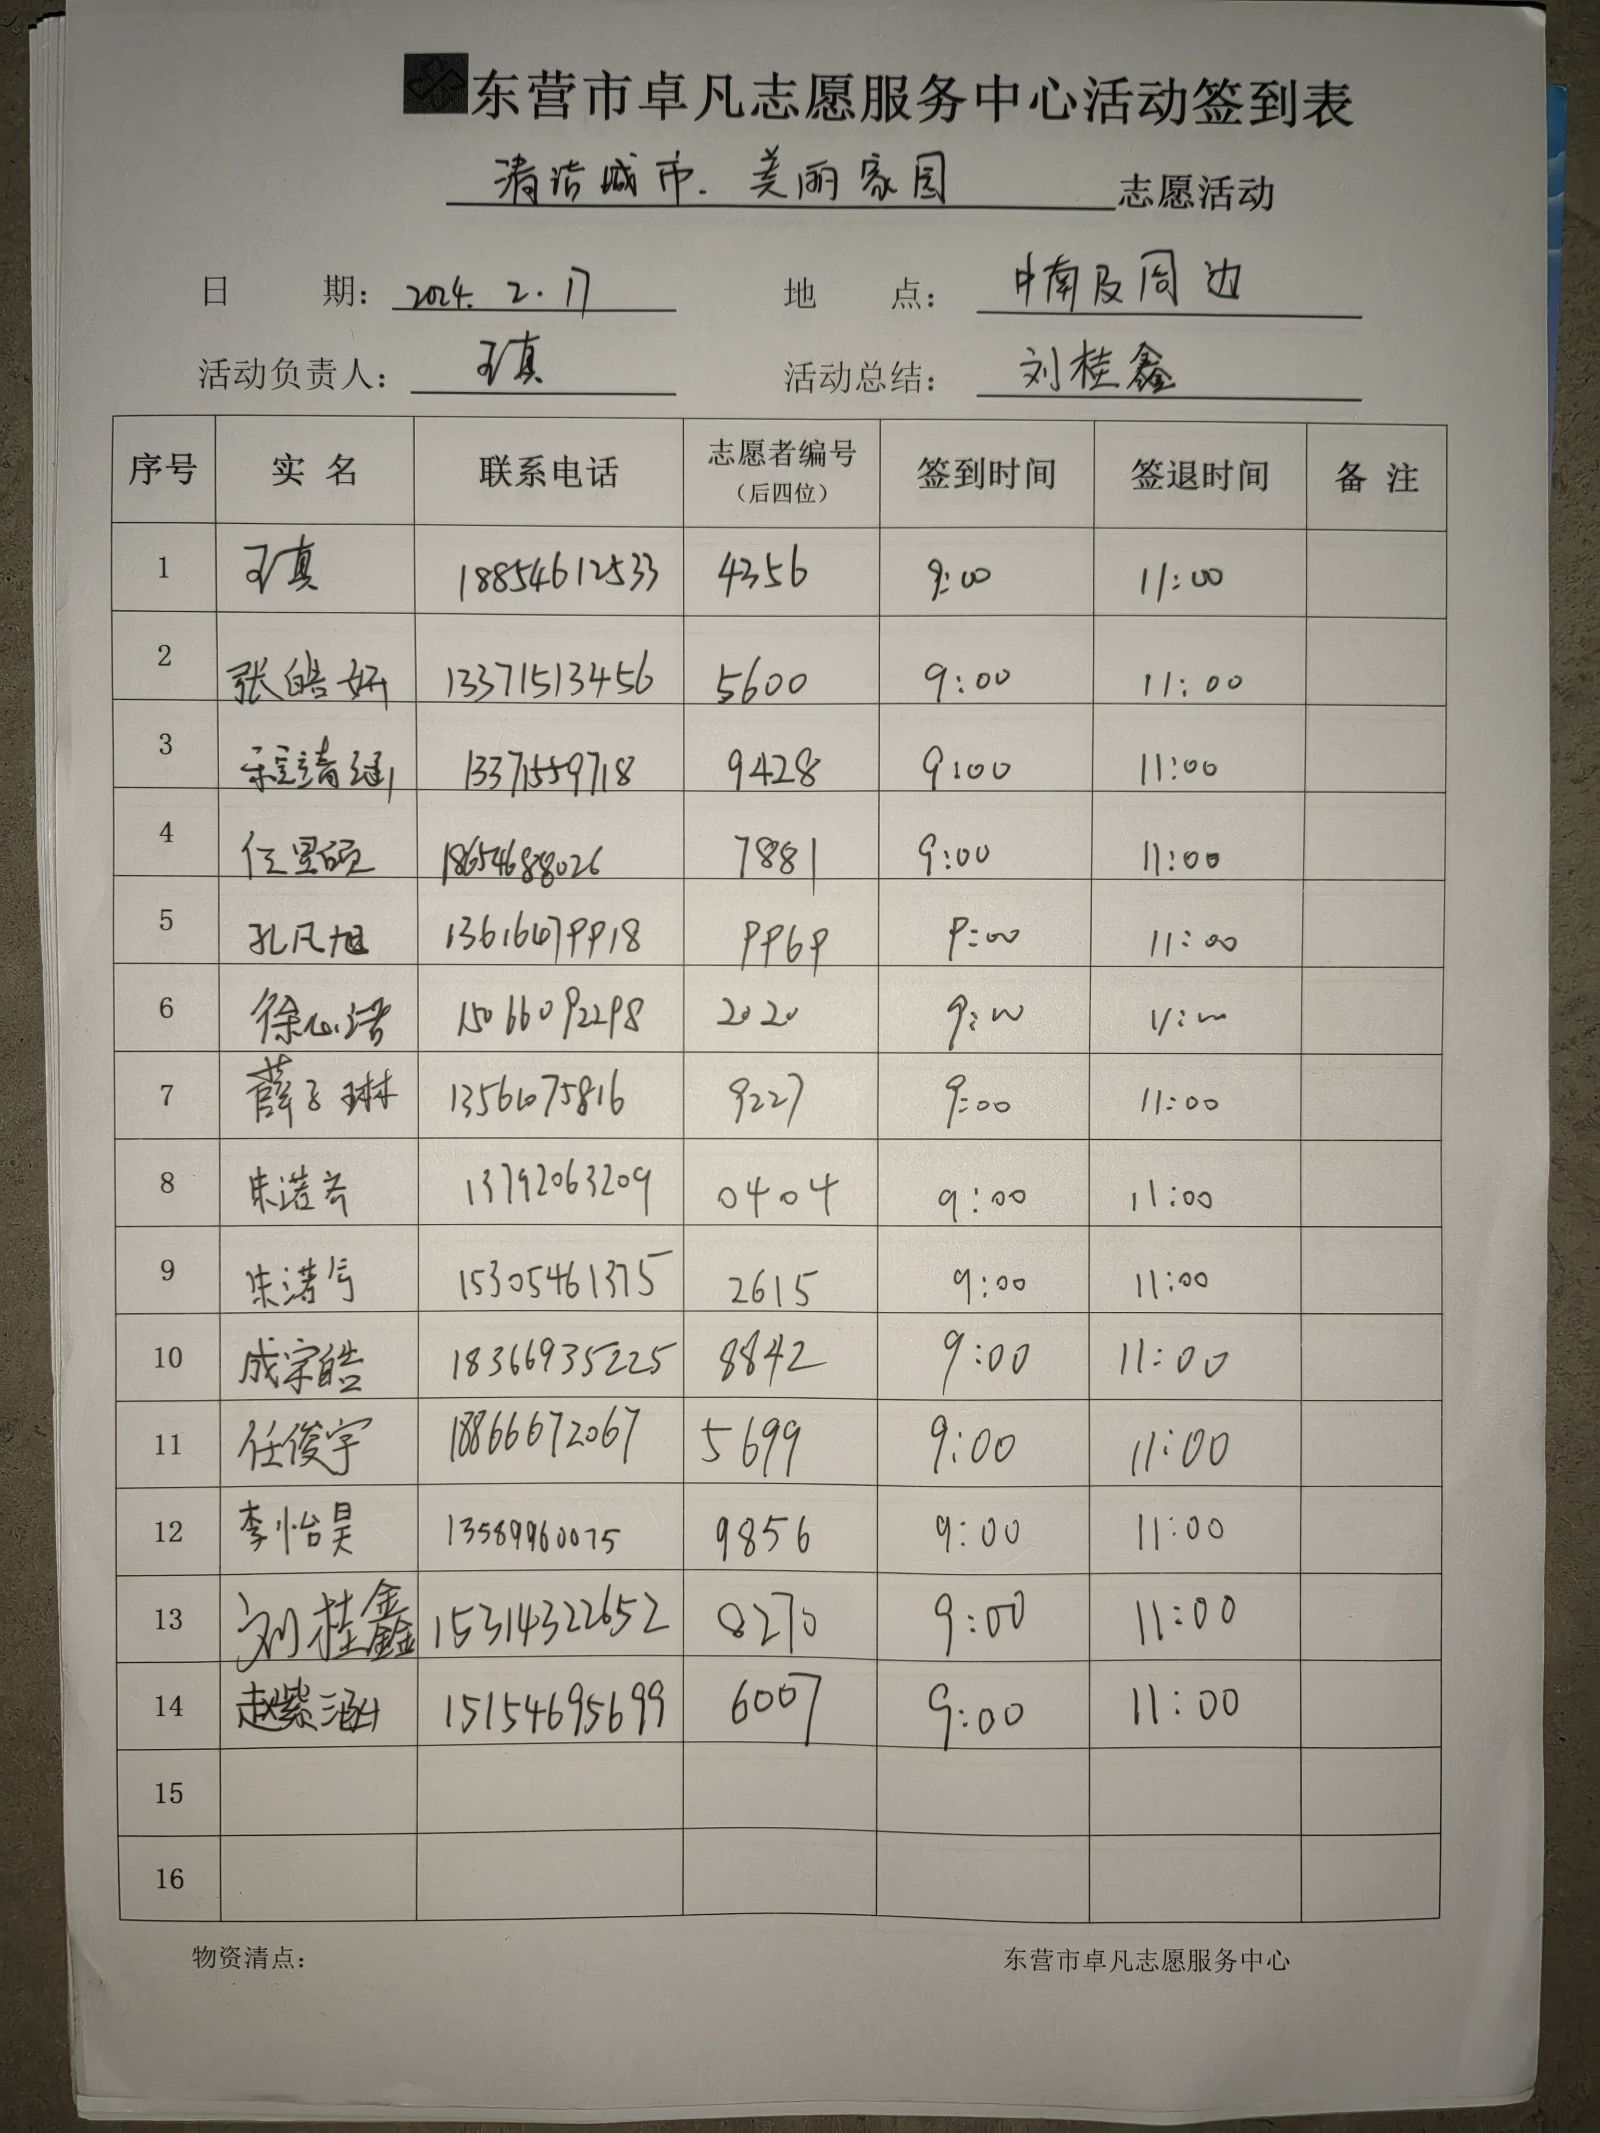 东营市卓凡志愿服务中心活动签到表
清洁城市.美丽家园 志愿活动
日 期: 2024.2.17 地 点: 中南及周边
活动负责人: 王真 活动总结: 刘桂鑫
序号 实 名 联系电话 志愿者编号(后四位) 签到时间 签退时间 备 注
1 王真 18854612533 4356 9:00 11:00
2 张皓妍 13371513456 5600 9:00 11:00
3 程靖涵 13371559718 9428 9:00 11:00
4 18654688026 7881 9:00 11:00
5 孔凡旭 13616479918 9969 9:00 11:00
6 徐心诺 15066092298 2020 9:00 11:00
7 薛子琳 13561075816 9227 9:00 11:00
8 13792063209 0404 9:00 11:00
9 15305461375 2615 9:00 11:00
10 成宗皓 18366935225 8842 9:00 11:00
11 任俊宇 18866672067 5699 9:00 11:00
12 李怡昊 13589960075 9856 9:00 11:00
13 刘桂鑫 15314322652 8270 9:00 11:00
14 赵紫涵 15154695699 6007 9:00 11:00
15
16
物资清点: 东营市卓凡志愿服务中心